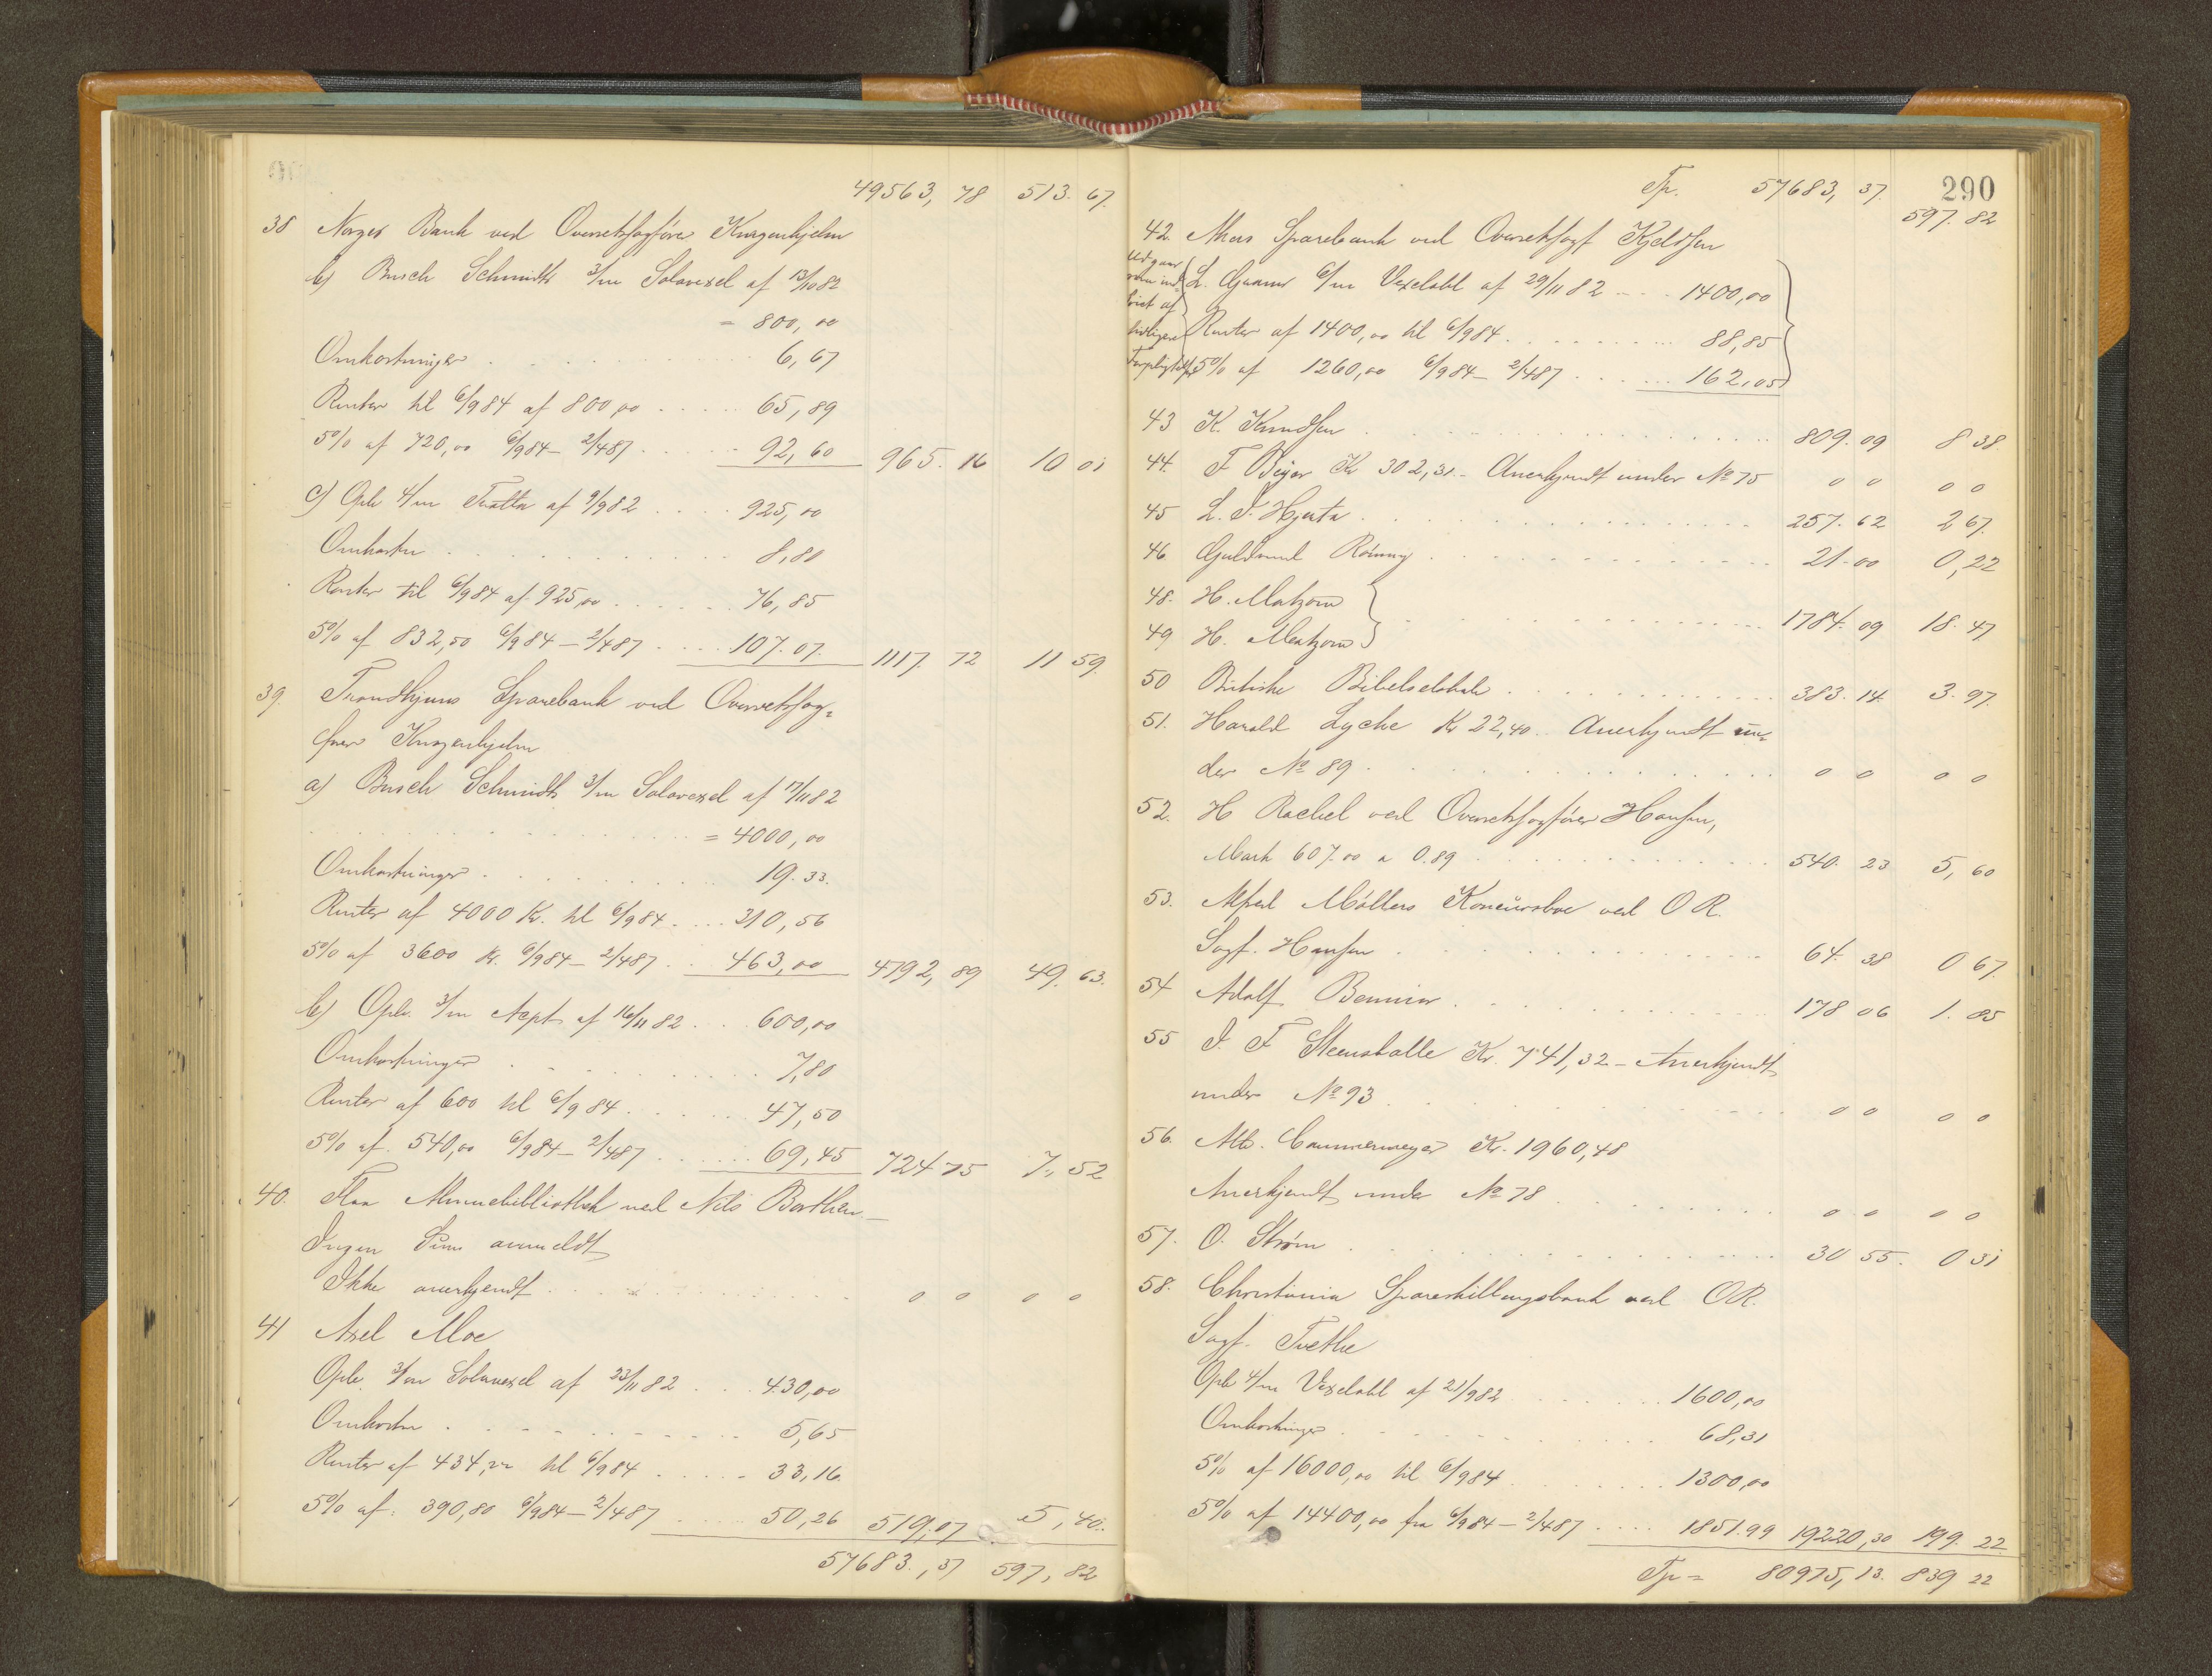 49563,78 513.67.
38 Norges Bank ved Overretssagfører Kurzenhjelm
b) Busch Schmidts 3/m Solavexel af 13/10 82
= 800,00
Omkostninger . . . 6,67
Renter til 6/9 84 af 800,00 . . . 65,89
5% af 720,00 6/9 84 - 2/4 87 . . . 92,60 965.16 10 01
c) Opr 4/m Tratta af 9/9 82 . . . 925,00
Omkostn . . . 8,80
Renter til 6/9 84 af 925,00 . . . 76,85
5% af 832,50 6/9 84 - 2/4 87 . . . 107.07. 1117.72 11 59.
39. Trondhjems Sparebank ved Overretssag=
fører Kurzenhjelm
a) Busch Schmidts 3/m Solavexel af 17/11 82
= 4000,00
Omkostninger . . . 19.33.
Renter af 4000 Kr. til 6/9 84 . . . 310,56
5% af 3600 Kr. 6/9 84 - 2/4 87 . . . 463,00 4792,89 49.63.
b) Opr. 3/m Acpt af 16/11 82 . . . 600,00
Omkostninger . . . 7,80
Renter af 600 til 6/9 84 . . . 47,50
5% af 540,00 6/9 84 - 2/4 87 . . . 69,45 724 75 7,52
40. Flaa Almuebibliothek ved Nils Borthen
Ingen Sum anmeldt
Ikke anerkjendt . . . 0 0 0 0
41 Axel Moe
Opr. 3/m Solavexel af 23/11 82 . . . 430,00
Omkostn . . . 5,65
Renter af 434,22 til 6/9 84 . . . 33,16
5% af 390,80 6/9 84 - 2/4 87 . . . 50,26 519,07 5,40.
57683,37 597,82
Tr. 57683,37. 290
597.82
42. Akers Sparebank ved Overretssagf Kjeldsen
L. 6/m Vexelobl af 29/11 82 . . . 1400,00
Renter af 1400,00 til 6/9 84 . . . 88,85
5% af 1260,00 6/9 84 - 2/4 87 . . . 162,05
43 K. Knudsen . . . 809.09 8 38.
44. F Beyer Kr 302,31 - Anerkjendt under No 75 0 0 0 0
45 L. J. Hjerta . . . 257.62 2 67.
46 Guldmund Rönning . . . 21-00 0,22
48. H. Matzow
49 H. Matzow . . . 1784.09 18.47
50 Britiske Bibelselskab . . . 383.14. 3.97.
51. Harald Lyche Kr 22,40. Anerkjendt un=
der No 89 . . . 0 0 0 0
52. H Rachel ved Overretssagfører Hansen,
Mark 607.00 a 0.89 . . . 540.23 5,60
53. Alfred Möllers Koncursboe ved O R.
Sagf. Hansen . . . 64.38 0 67.
54 Adolf Bennier . . . 178 06 1.85
55 J. F Steensballe Kr. 741,32 - Anerkjendt
under No 93 . . . 0 0 0 0
56. Alb. Cammermeyer Kr. 1960,48
Anerkjendt under No 78 . . . 0 0 0 0
57. O. Strøm . . . 30 55. 0 31
58. Christiania Spareskillingsbank ved OR.
Sagf. Tvethe
Opr 4/m Vexelobl af 21/9 82 . . . 1600,00
Omkostninger . . . 68,31
5% af 16000,00 til 6/9 84 . . . 1300,00
5% af 14400,00 fra 6/9 84 - 2/4 87 . . . 1851.99 19220,30 199.22
Tr = 80975,13. 839 22